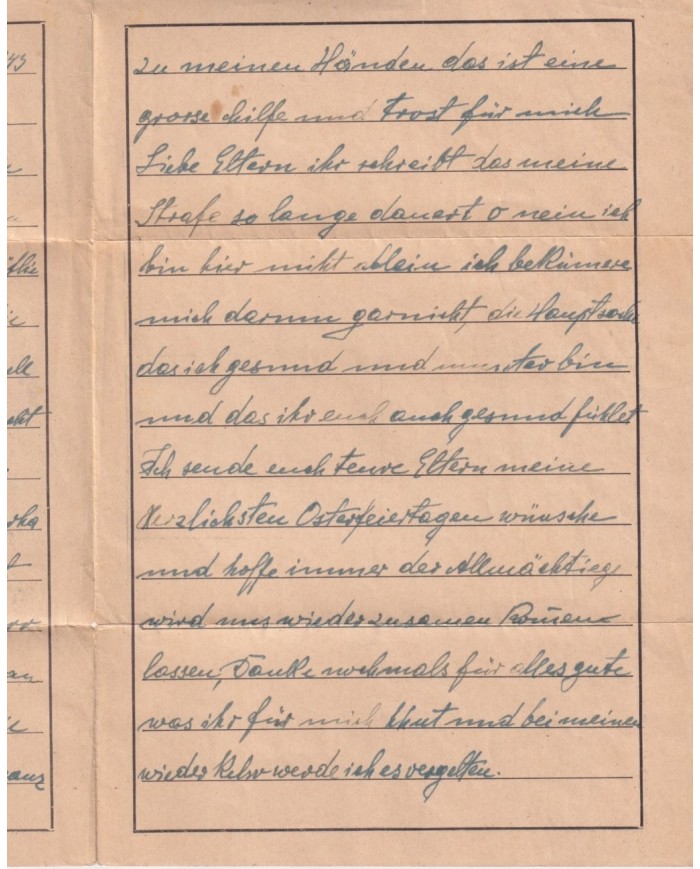 43
zu meinen Händen das ist eine
grosse hilfe und Trost für mich
Liebe Eltern ihr schreibt das meine
Strafe so lange dauert o nein ich
bin hier nicht allein ich bekümere
mich darum garnicht, die Hauptsache
das ich gesund und munter bin
und das ihr euch auch gesund fühlet
Ich sende euch teure Eltern meine
Herzlichsten Osterfeiertagen wünsche
und hoffe immer der Allmächtiege
wird uns wieder zusamen Komen
lassen, Danke nochmals für alles gute
was ihr für mich thut und bei meinen
wieder werde ich es vergelten.